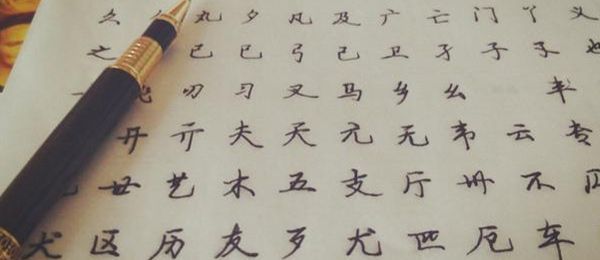 么 丸 夕 凡 及 广 亡 门 丫 义
之 已 巳 弓 己 卫 孑 子 孓 也
刃 习 叉 马 乡 幺 丰
开 亓 夫 天 元 无 韦 云 专
艺 木 五 支 厅 卅 不
犬 区 历 友 歹 尤 匹 厄 车